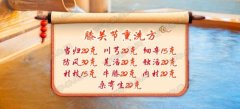 膝关节熏洗方
当归20克 川芎20克 细辛15克
防风20克 羌活20克 独活20克
桂枝15克 牛膝20克 肉桂20克
桑寄生20克